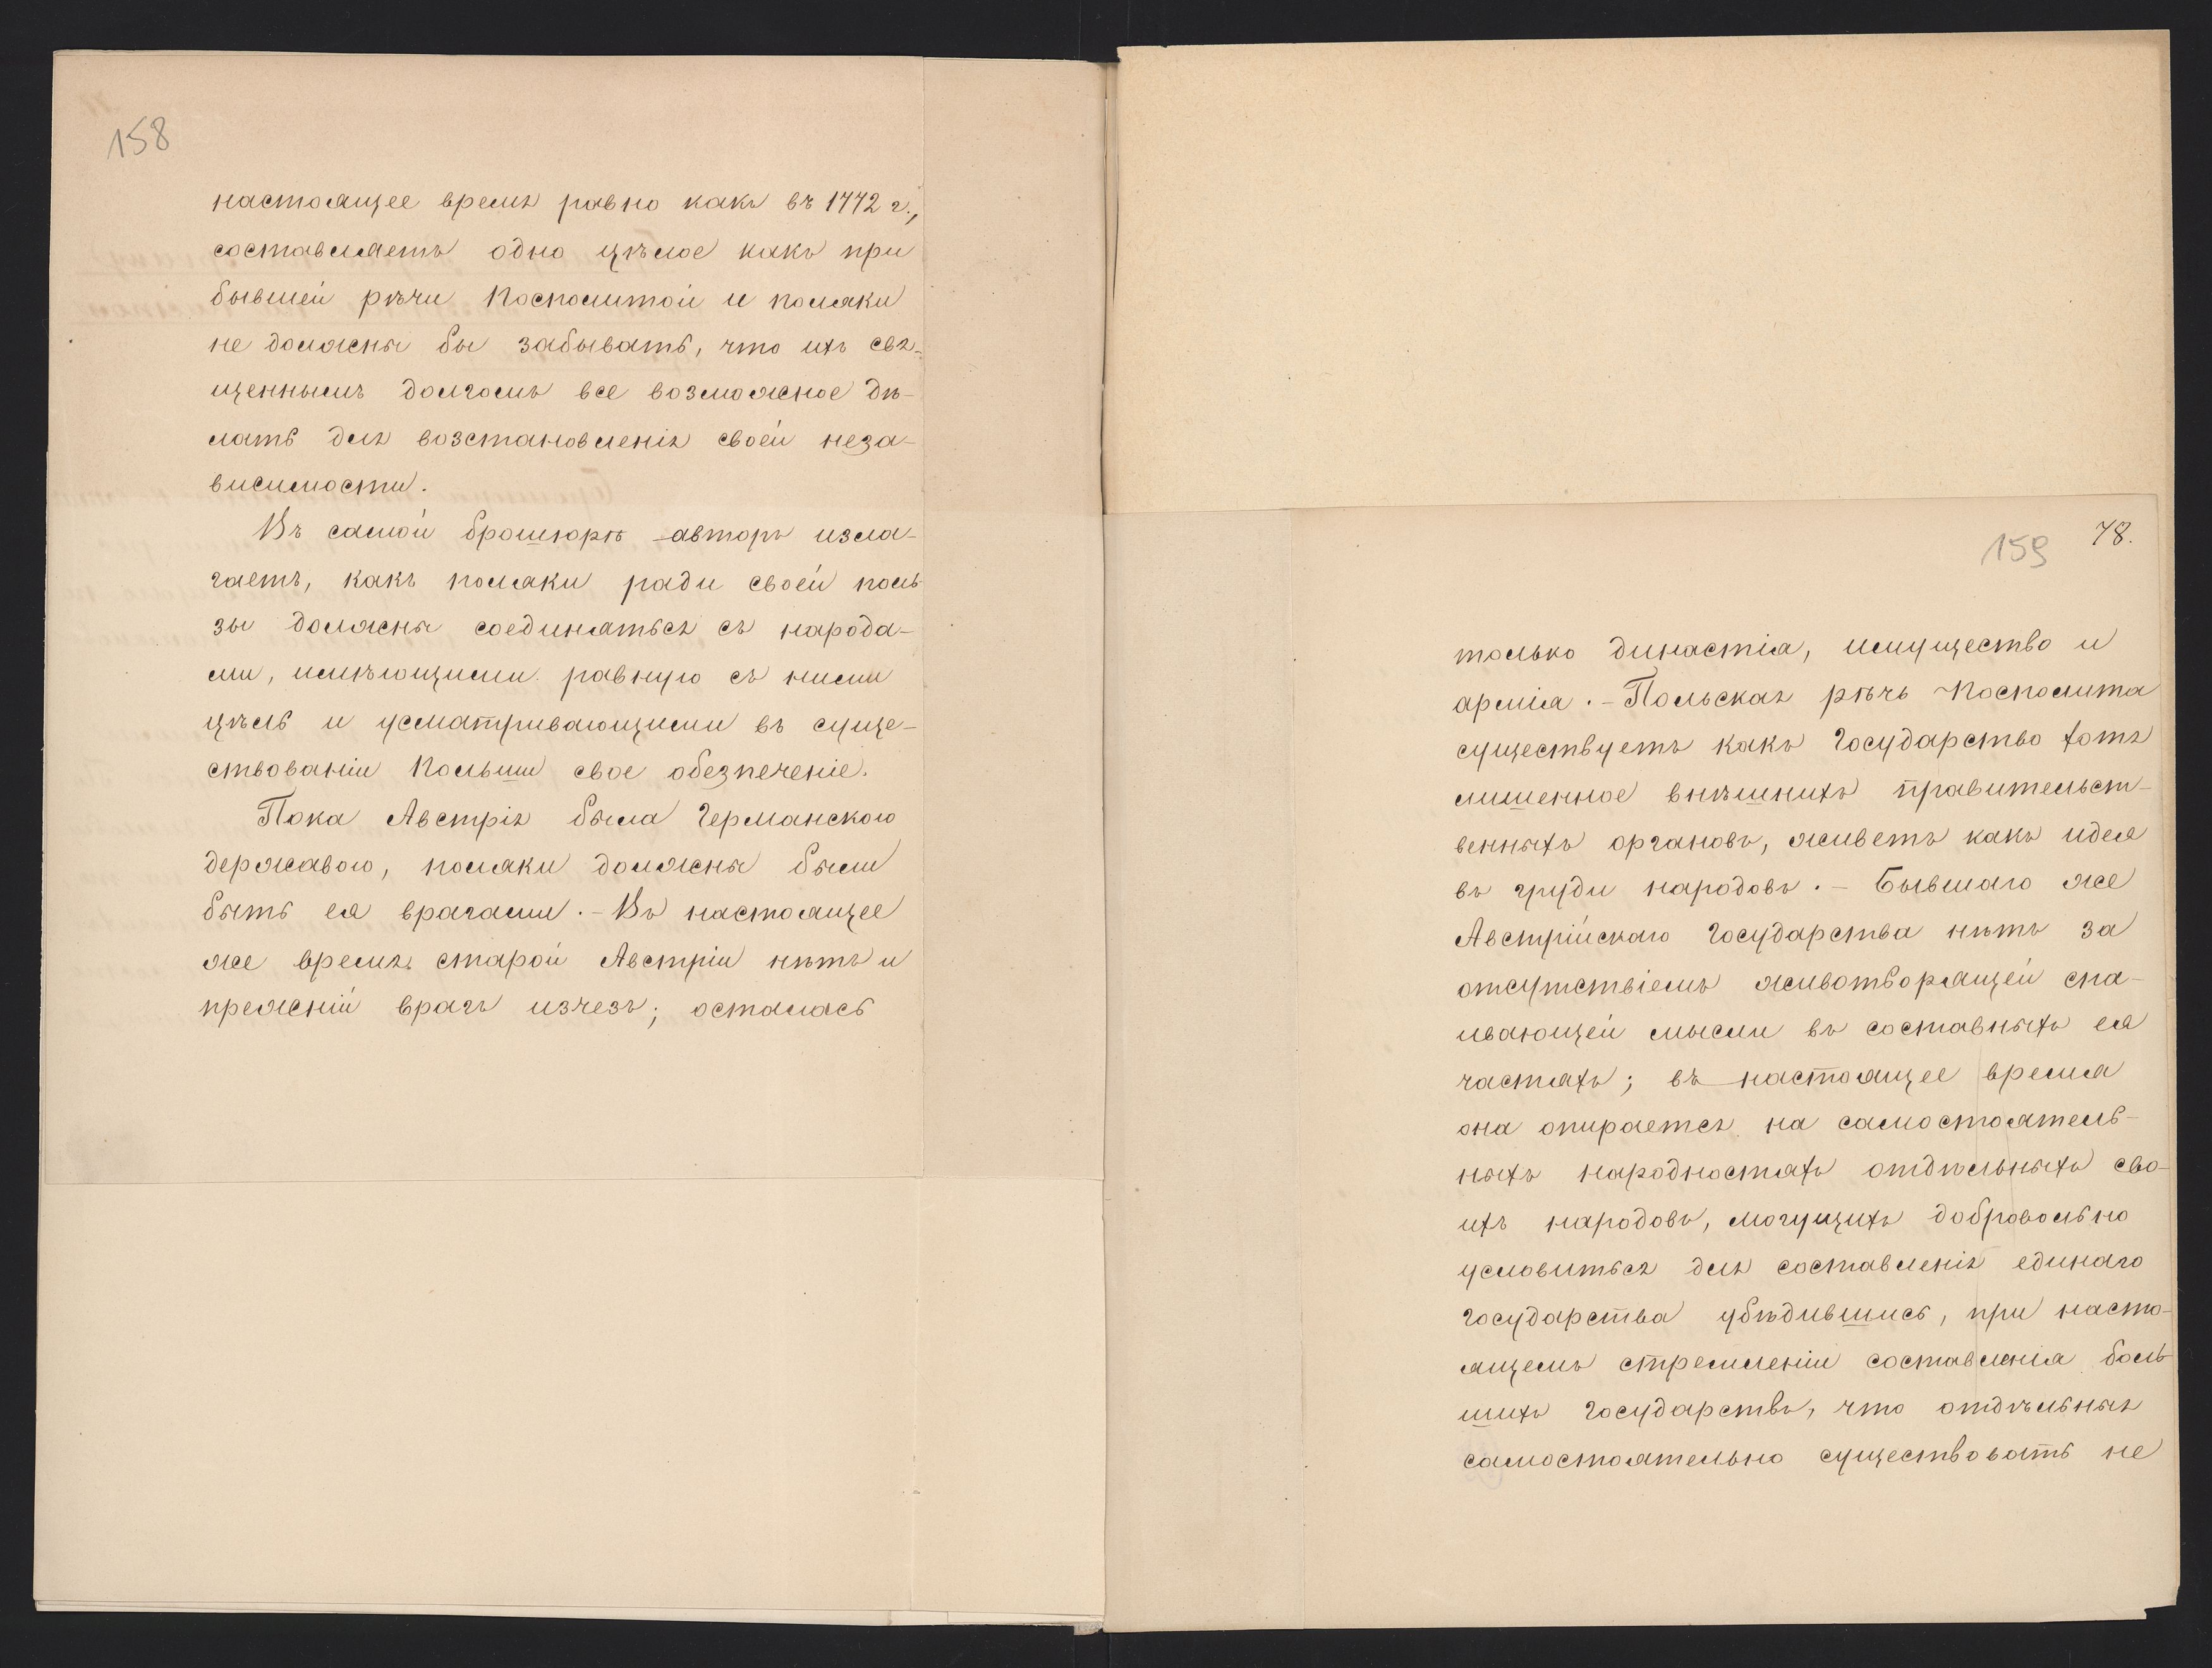 158
настоящее время равно какъ въ 1772 г.,
составляетъ одно цѣлое какъ при
бывшей рѣчи Посполитой и поляки
не должны бы забывать, что ихъ свя-
щеннымъ долгомъ все возможное дѣ-
лать для возстановленія своей неза-
висимости.
Въ самой брошюрѣ авторъ изла-
гаетъ, какъ поляки ради своей поль-
зы должны соединяться съ народа-
ми, имѣющими равную съ ними
цѣль и усматривающими въ суще-
ствованіи Польши свое обезпеченіе.
Пока Австрія была Германскою
державою, поляки должны были
быть ея врагами. - Въ настоящее
же время старой Австріи нѣтъ и
прежній врагъ изчезъ; осталась
159
78.
только династія, имущество и
армія. - Польская рѣчь Посполита
существуетъ какъ Государство хотя
лишенное внѣшнихъ правительст-
венныхъ органовъ, живетъ какъ идея
въ груди народовъ. - Бывшаго же
Австрійскаго Государства нѣтъ за
отсутствіемъ животворящей спа-
ивающей мысли въ составныхъ ея
частяхъ; въ настоящее время
она опирается на самостоятель-
ныхъ народностяхъ отдѣльныхъ сво-
ихъ народовъ, могущихъ добровольно
условиться для составленія единаго
Государства убѣдившись, при насто-
ящемъ стремленіи составленія боль-
шихъ Государствъ, что отдѣльныя
самостоятельно существовать не